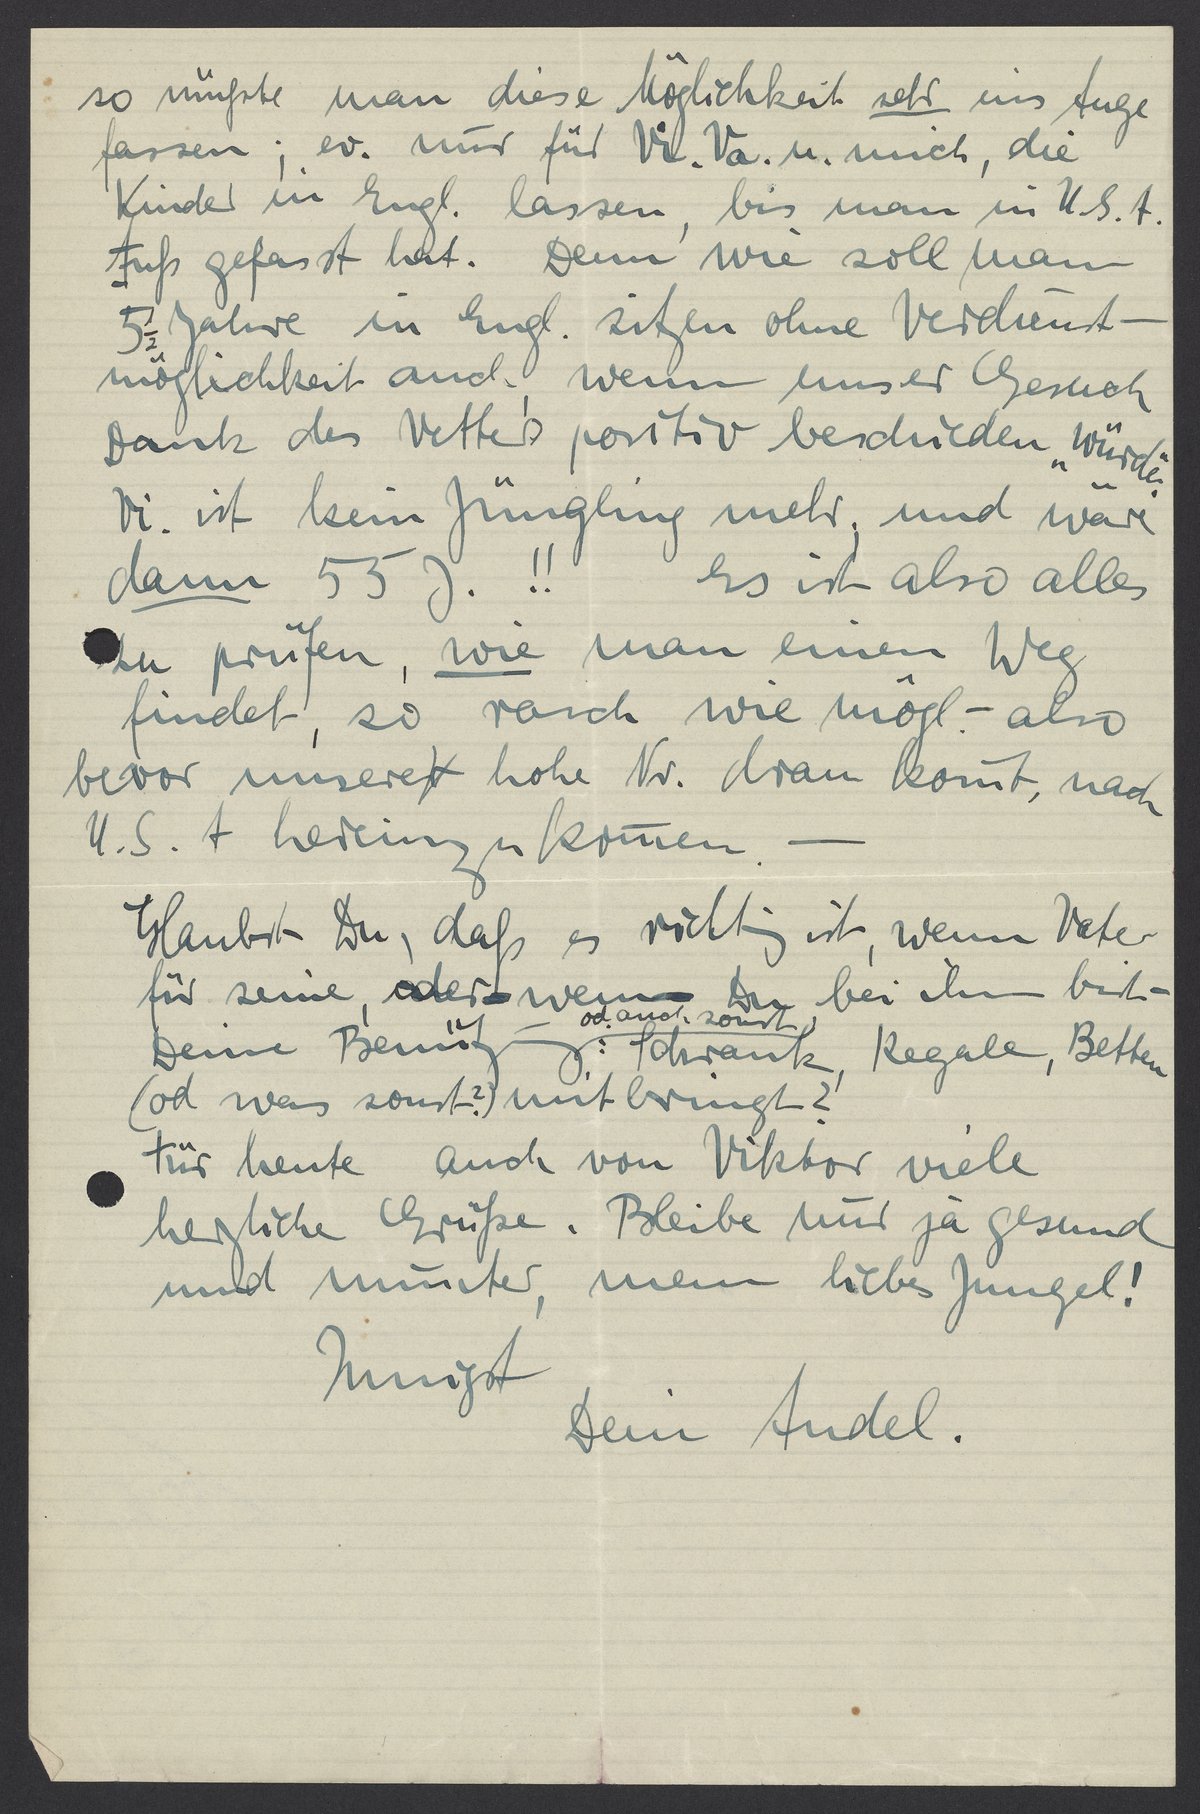 so müßte man diese Möglichkeit sehr ins Auge
fassen; ev. nur für Vi. Va. u. mich, die
Kinder in Engl. lassen, bis man in U.S.A.
Fuß gefasst hat. Denn wie soll man
5½ Jahre in Engl. sitzen ohne Verdienst-
möglichkeit auch, wenn unser Gesuch
Dank des Vetters positiv beschieden "würde".
Vi. ist kein Jüngling mehr, und wäre
dann 55 J. !! Es ist also alles
zu prüfen, wie man einen Weg
findet, so rasch wie mögl. - also
bevor unsere hohe Nr. dran kom̄t, nach
U.S.A hereinzukom̄en. —
Glaubst Du, daß es richtig ist, wenn Vater
für seine, oder wenn Du bei ihm bist -
od. auch sonst
Deine Benützung: Schrank, Regale, Betten
(od was sonst?) mitbringt?
Für heute auch von Viktor viele
herzliche Grüße. Bleibe nur ja gesund
und munter, mein liebes Jungel!
Innigst
Dein Andel.